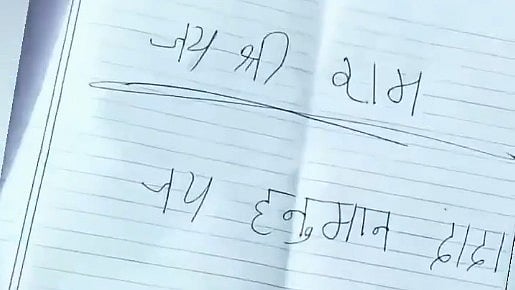 जय श्री राम
जय हनुमान दादा